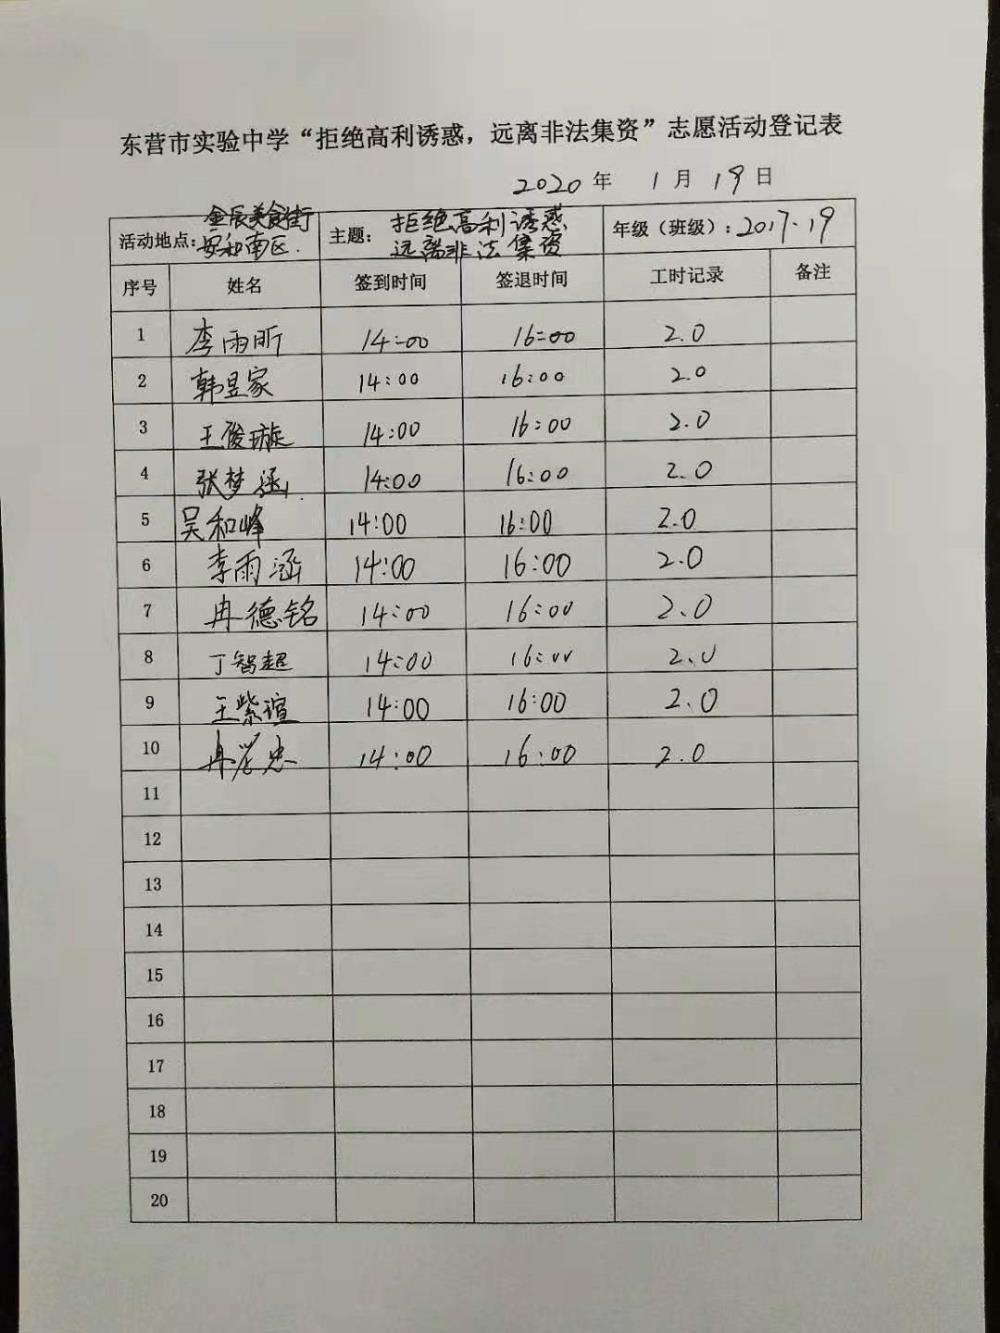 东营市实验中学“拒绝高利诱惑，远离非法集资”志愿活动登记表
2020 年 1 月 19 日
活动地点：金辰美食街 安和南区. 主题：拒绝高利诱惑 远离非法集资 年级（班级）：2017.19
序号 姓名 签到时间 签退时间 工时记录 备注
1 李雨昕 14:00 16:00 2.0
2 韩昱家 14:00 16:00 2.0
3 王俊璇 14:00 16:00 2.0
4 张梦涵 14:00 16:00 2.0
5 吴和峰 14:00 16:00 2.0
6 李雨涵 14:00 16:00 2.0
7 冉德铭 14:00 16:00 2.0
8 丁智超 14:00 16:00 2.0
9 王紫谊 14:00 16:00 2.0
10 14:00 16:00 2.0
11
12
13
14
15
16
17
18
19
20